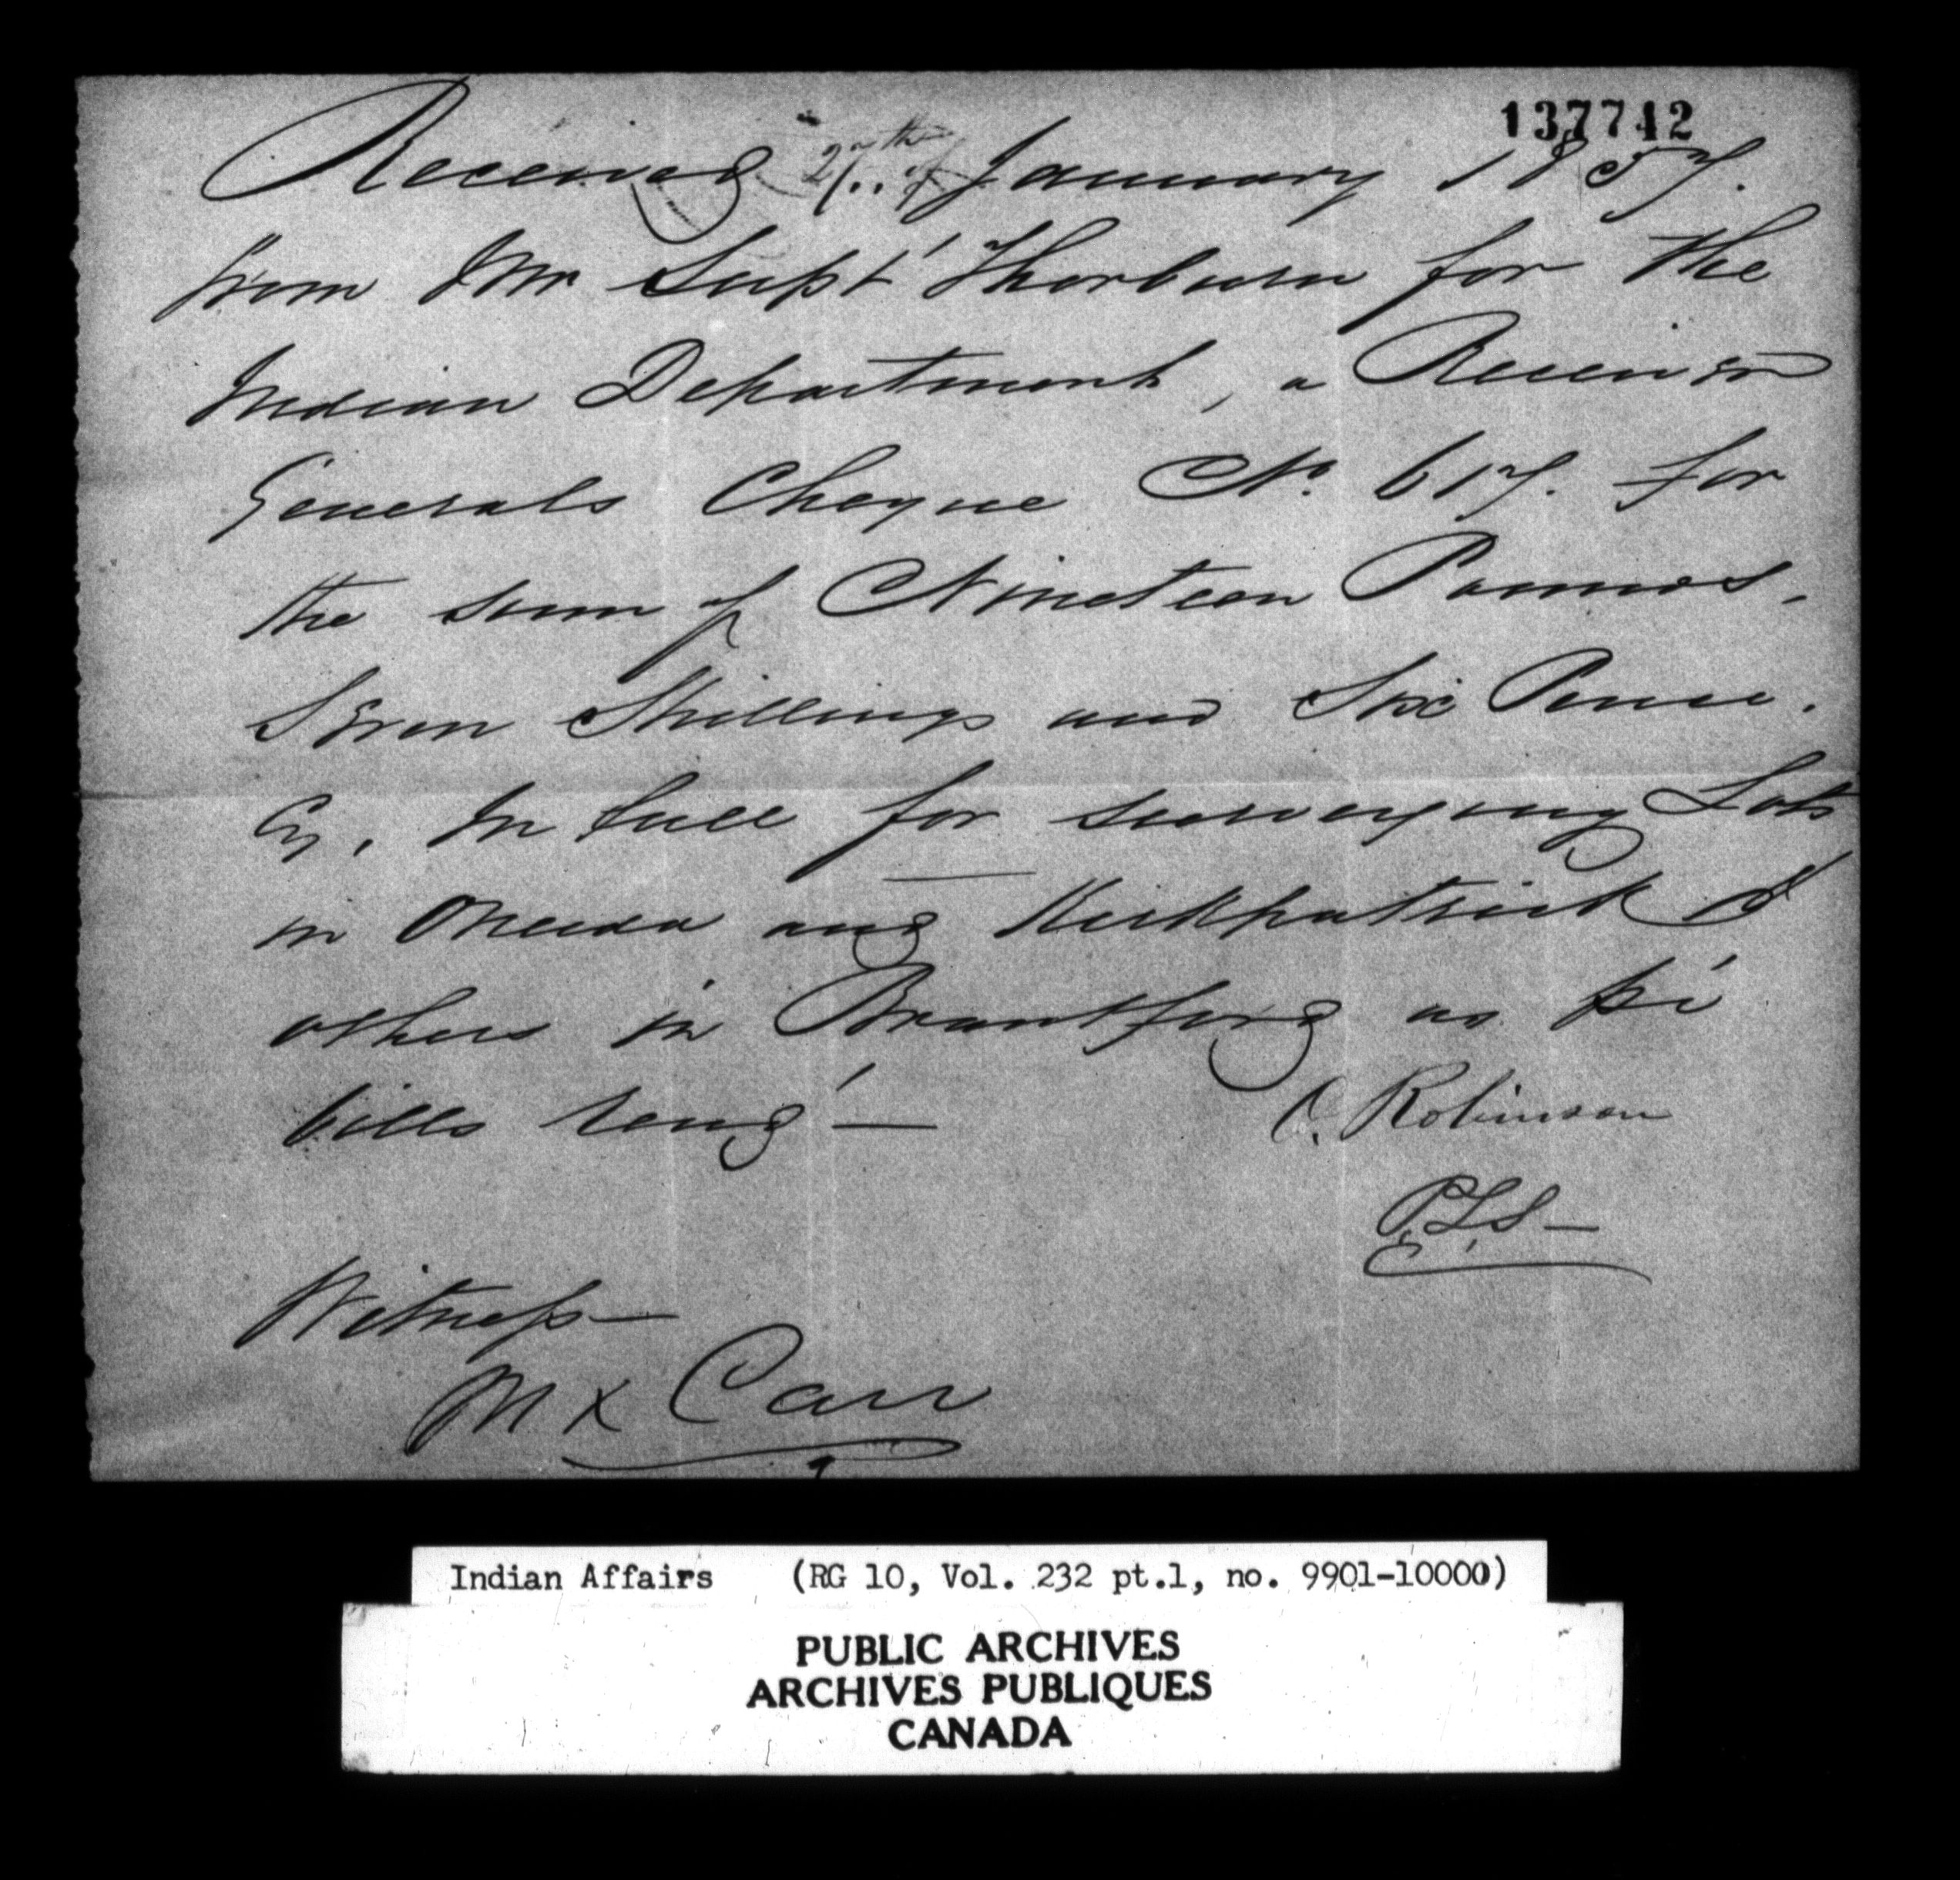 137742
Received 27th of January 1857.
from Mr Supt Thorburn for the
Indian Department, a Receiver
Generals Cheque No. 617. for
the sum of Nineteen Pounds,
Seven Shillings and Six Pence.
Cy, In full for surveying Lots
in Oneida and Kirkpatrick &
others in Brantford as pr
bills rend'—
O. Robinson
P.L.S—
Witness—
M x Carr
Indian Affairs (RG 10, Vol. 232 pt.1, no. 9901-10000)
PUBLIC ARCHIVES
ARCHIVES PUBLIQUES
CANADA